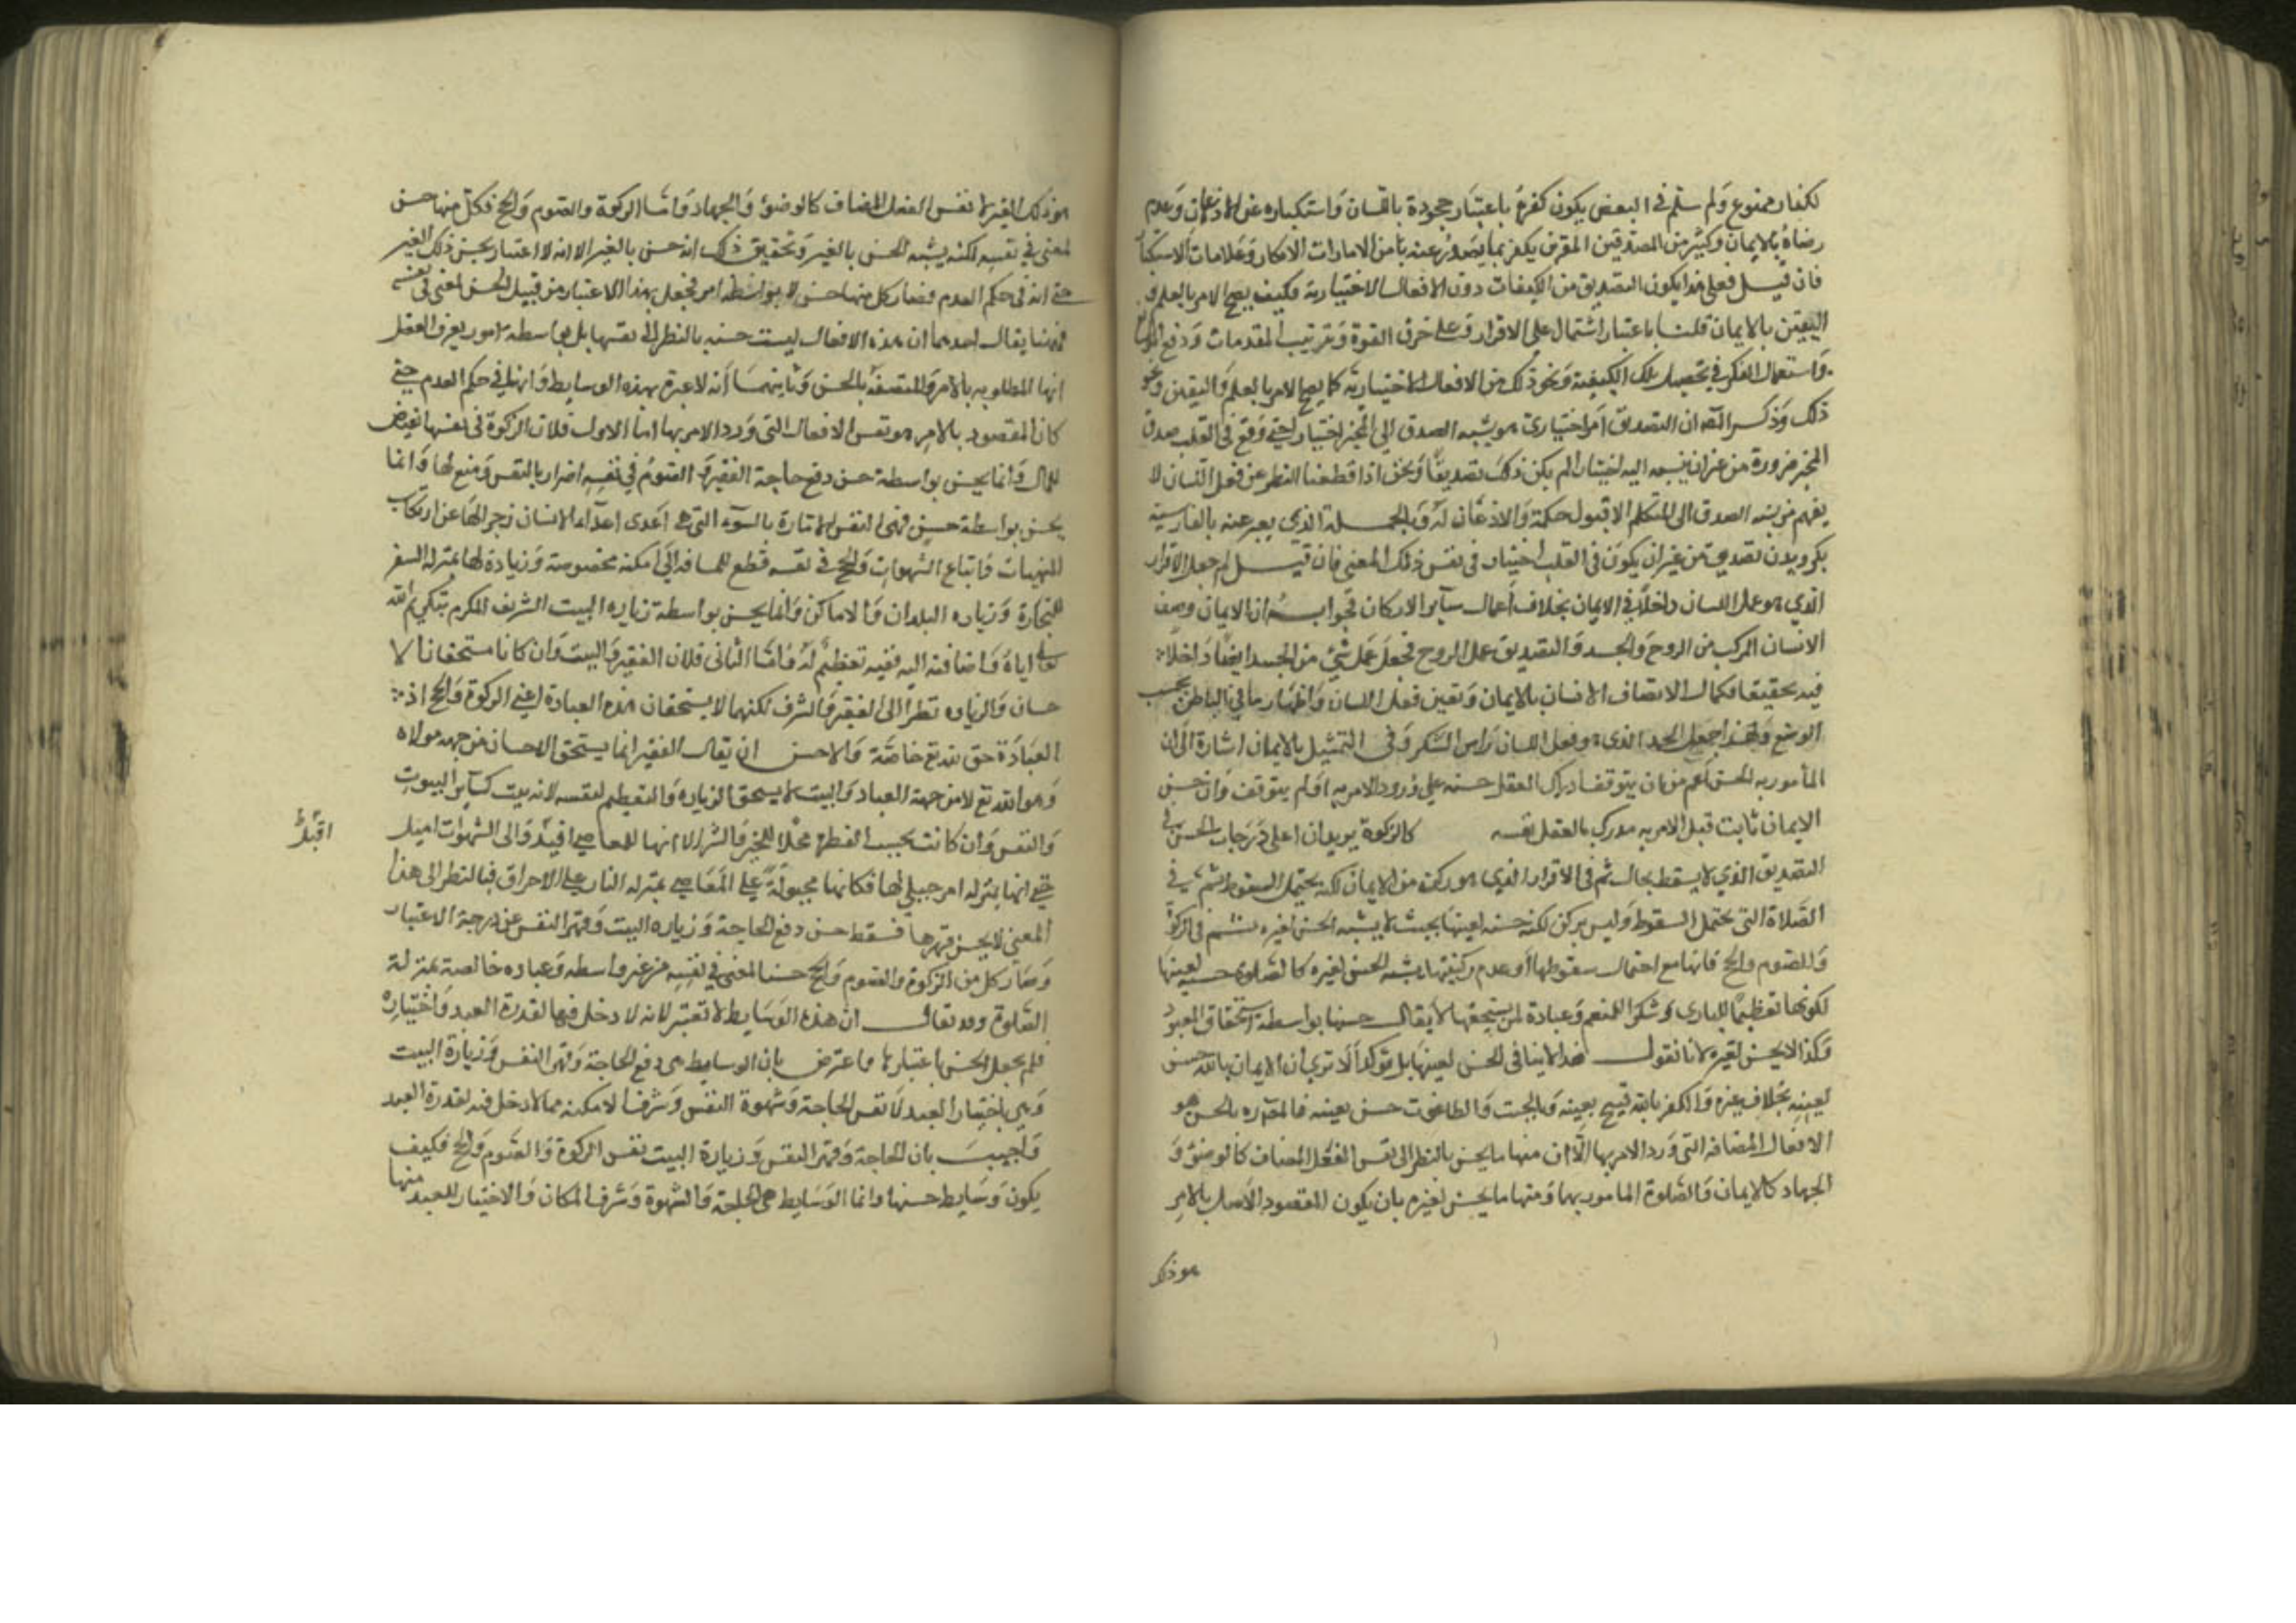 لكفار ممنوع ولم سلم في البعض يكون كفره باعتبار جحوده باللسان واستكباره عن الاذعان وعدم
رضاه بالايمان وكثير من المصدقين المقرين يكفر بما يصدر عنه من الامارات الانكار وعلامات الاستكبار
فان قيل فعلى هذا يكون التصديق من الكيفيات دون الافعال الاختيارية فكيف يصح الامر بالعلم و
اليقين بالايمان قلنا باعتبار اشتمال على الاقرار وعلى صرف القوة وترتيب المقدمات ودفع الموانع
واستعمال الفكر في تحصيل تلك الكيفية ونحو ذلك من الافعال الاختيارية كما يصح الامر بالعلم واليقين ونحو
ذلك وذكر المص ان التصديق امر اختياري هو نسبة الصدق الى المخبر اختيارا حتى لو وقع في القلب صدق
المخبر ضرورة من غير ان ينسبه اليه اختيارا لم يكن ذلك تصديقا ونحن اذا قطعنا النظر عن فعل اللسان لا
يفهم من نسبة الصدق الى المتكلم الا قبول حكمه والاذعان له وبالجملة الذي يعبر عنه بالفارسية
بكرويدن تصديق من غير ان يكون في القلب اختيار في نفس ذلك المعنى فان قيل لم جعل الاقرار
الذي هو عمل اللسان داخلا في الايمان بخلاف اعمال سائر الاركان فجوابه ان الايمان وصف
الانسان المركب من الروح والجسد والتصديق عمل الروح فجعل عمل شئ من الجسد ايضا داخلا
فيه تحقيقا لكمال الاتصاف الانسان بالايمان وتعين فعل اللسان واظهار ما في الباطن بحسب
الوضع ولهذا جعل الحمد الذي هو فعل اللسان راس الشكر وفي التمثيل بالايمان اشارة الى ان
المأمور به الحسن اعم من ان يتوقف ادراك العقل حسنه على ورود الامر به او لم يتوقف وان حسن
الايمان ثابت قبل الامر به مدرك بالعقل نفسه كالزكوة يريد ان اعلى درجات الحسن في
التصديق الذي لا يسقط بحال ثم في الاقرار الذي هو ركن من الايمان لكنه يحتمل السقوط ثم في
الصلاة التي تحتمل السقوط وليس بركن لكنه حسنه لعينها بحيث لا يشبه الحسن لغيره ثم في الزكوة
والصوم والحج فانها مع احتمال سقوطها وعدم ركنيتها يشبه الحسن لغيره كالصلوة حسنه لعينها
لكونها تعظيما للباري وشكرا للمنعم وعبادة لمن يستحقها لا يقال حسنها بواسطة استحقاق المعبود
وكذا لا يحسن لغيره لانا نقول هذا لا ينافي الحسن لعينها بل يؤكد الا ترى ان الايمان بالله حسن
لعينه بخلاف غيره والكفر بالله قبيح بعينه وبالجبت والطاغوت حسن بعينه فالمأمور به بالحسن هو
الافعال المضافه التي ورد الامر بها الا ان منها ما يحسن بالنظر الى نفس الفعل المضاف كالوضوء و
الجهاد كالايمان والصلوة المامور بهما ومنها ما يحسن لغيره بان يكون المقصود الاصلي بالامر
هو ذلك
هو ذلك الغير لا نفس الفعل المضاف كالوضوء والجهاد واما الزكوة والصوم والحج فكل منها حسن
لمعنى في نفسه لكنه يشبه الحسن بالغير وتحقيق ذلك انه حسن بالغير الا انه لا اعتبار بحسن ذلك الغير
حتى انه في حكم العدم فصار كل منها حسن لا بواسطة امر فجعل بهذا الاعتبار من قبيل الحسن لمعنى في نفسه
فههنا يقال احدهما ان هذه الافعال ليست حسنه بالنظر الى نفسها بل بواسطه امور يعرف العقل
انها المطلوبه بالامر والمتصفة بالحسن وثانيهما انه لا عبرة بهذه الوسايط وانها في حكم العدم حتى
كان المقصود بالامر هو نفس الافعال التي ورد الامر بها اما الاول فلان الزكوة في نفسها تنقيص
للمال وانما يحسن بواسطة حسن دفع حاجة الفقير والصوم في نفسه اضرار بالنفس ومنع لها وانما
يحسن بواسطة حسن قهر النفس الامارة بالسوء التي هي اعدى اعداء الانسان زجرا لها عن ارتكاب
المنهيات واتباع الشهوات والحج في نفسه قطع للمسافه الى امكنه مخصوصة وزيارة لها بمنزله السفر
للتجارة وزياره البلدان والاماكن وانما يحسن بواسطة زياره البيت الشريف المكرم بتكريم الله
تعالى اياه واضافته اليه ففيه تعظيم له واما الثاني فلان الفقير والبيت وان كانا مستحقان للا
حسان والزياره نظرا الى الفقير والشرف لكنهما لا يستحقان هذه العبادة اعني الزكوة والحج اذ
العبادة حق لله تع خاصة والاحسن ان يقال الفقير انما يستحق الاحسان من جهه مولاه
وهو الله تع لا من جهة العباد والبيت لا يستحق الزياره والتعظيم لنفسه لانه بيت كسائر البيوت
والنفس وان كانت بحسب الفطرة محلا للخير والشر الا انها للمعاصي اقبل والى الشهوات اميل
اقبل
حتى انها بمنزله امر جبلي لها فكانها مجبولة على المعاصي بمنزله النار على الاحراق فبالنظر الى هذا
المعنى لا يحسن قهرها فسقط حسن دفع الحاجة وزياره البيت وقهر النفس عن درجة الاعتبار
وصار كل من الزكوة والصوم والحج حسنا لمعنى في نفسه من غير واسطه وعباده خالصة بمنزلة
الصلوة وقد يقال ان هذه الوسايط لا تعتبر لانه لا دخل فيها لقدرة العبد واختياره
فلم يجعل الحسن باعتبارها فاعترض بان الوسايط هي دفع الحاجة وقهر النفس وزيارة البيت
وهي باختيار العبد لا نفس الحاجة وشهوة النفس وشرف الامكنه مما لا دخل فيه لقدرة العبد
واجيب بان الحاجة وقهر النفس وزيارة البيت نفس الزكوة والصوم والحج فكيف
يكون وسايط حسنها وانما الوسايط هي الحاجة والشهوة وشرف المكان والاختيار للعبد منها